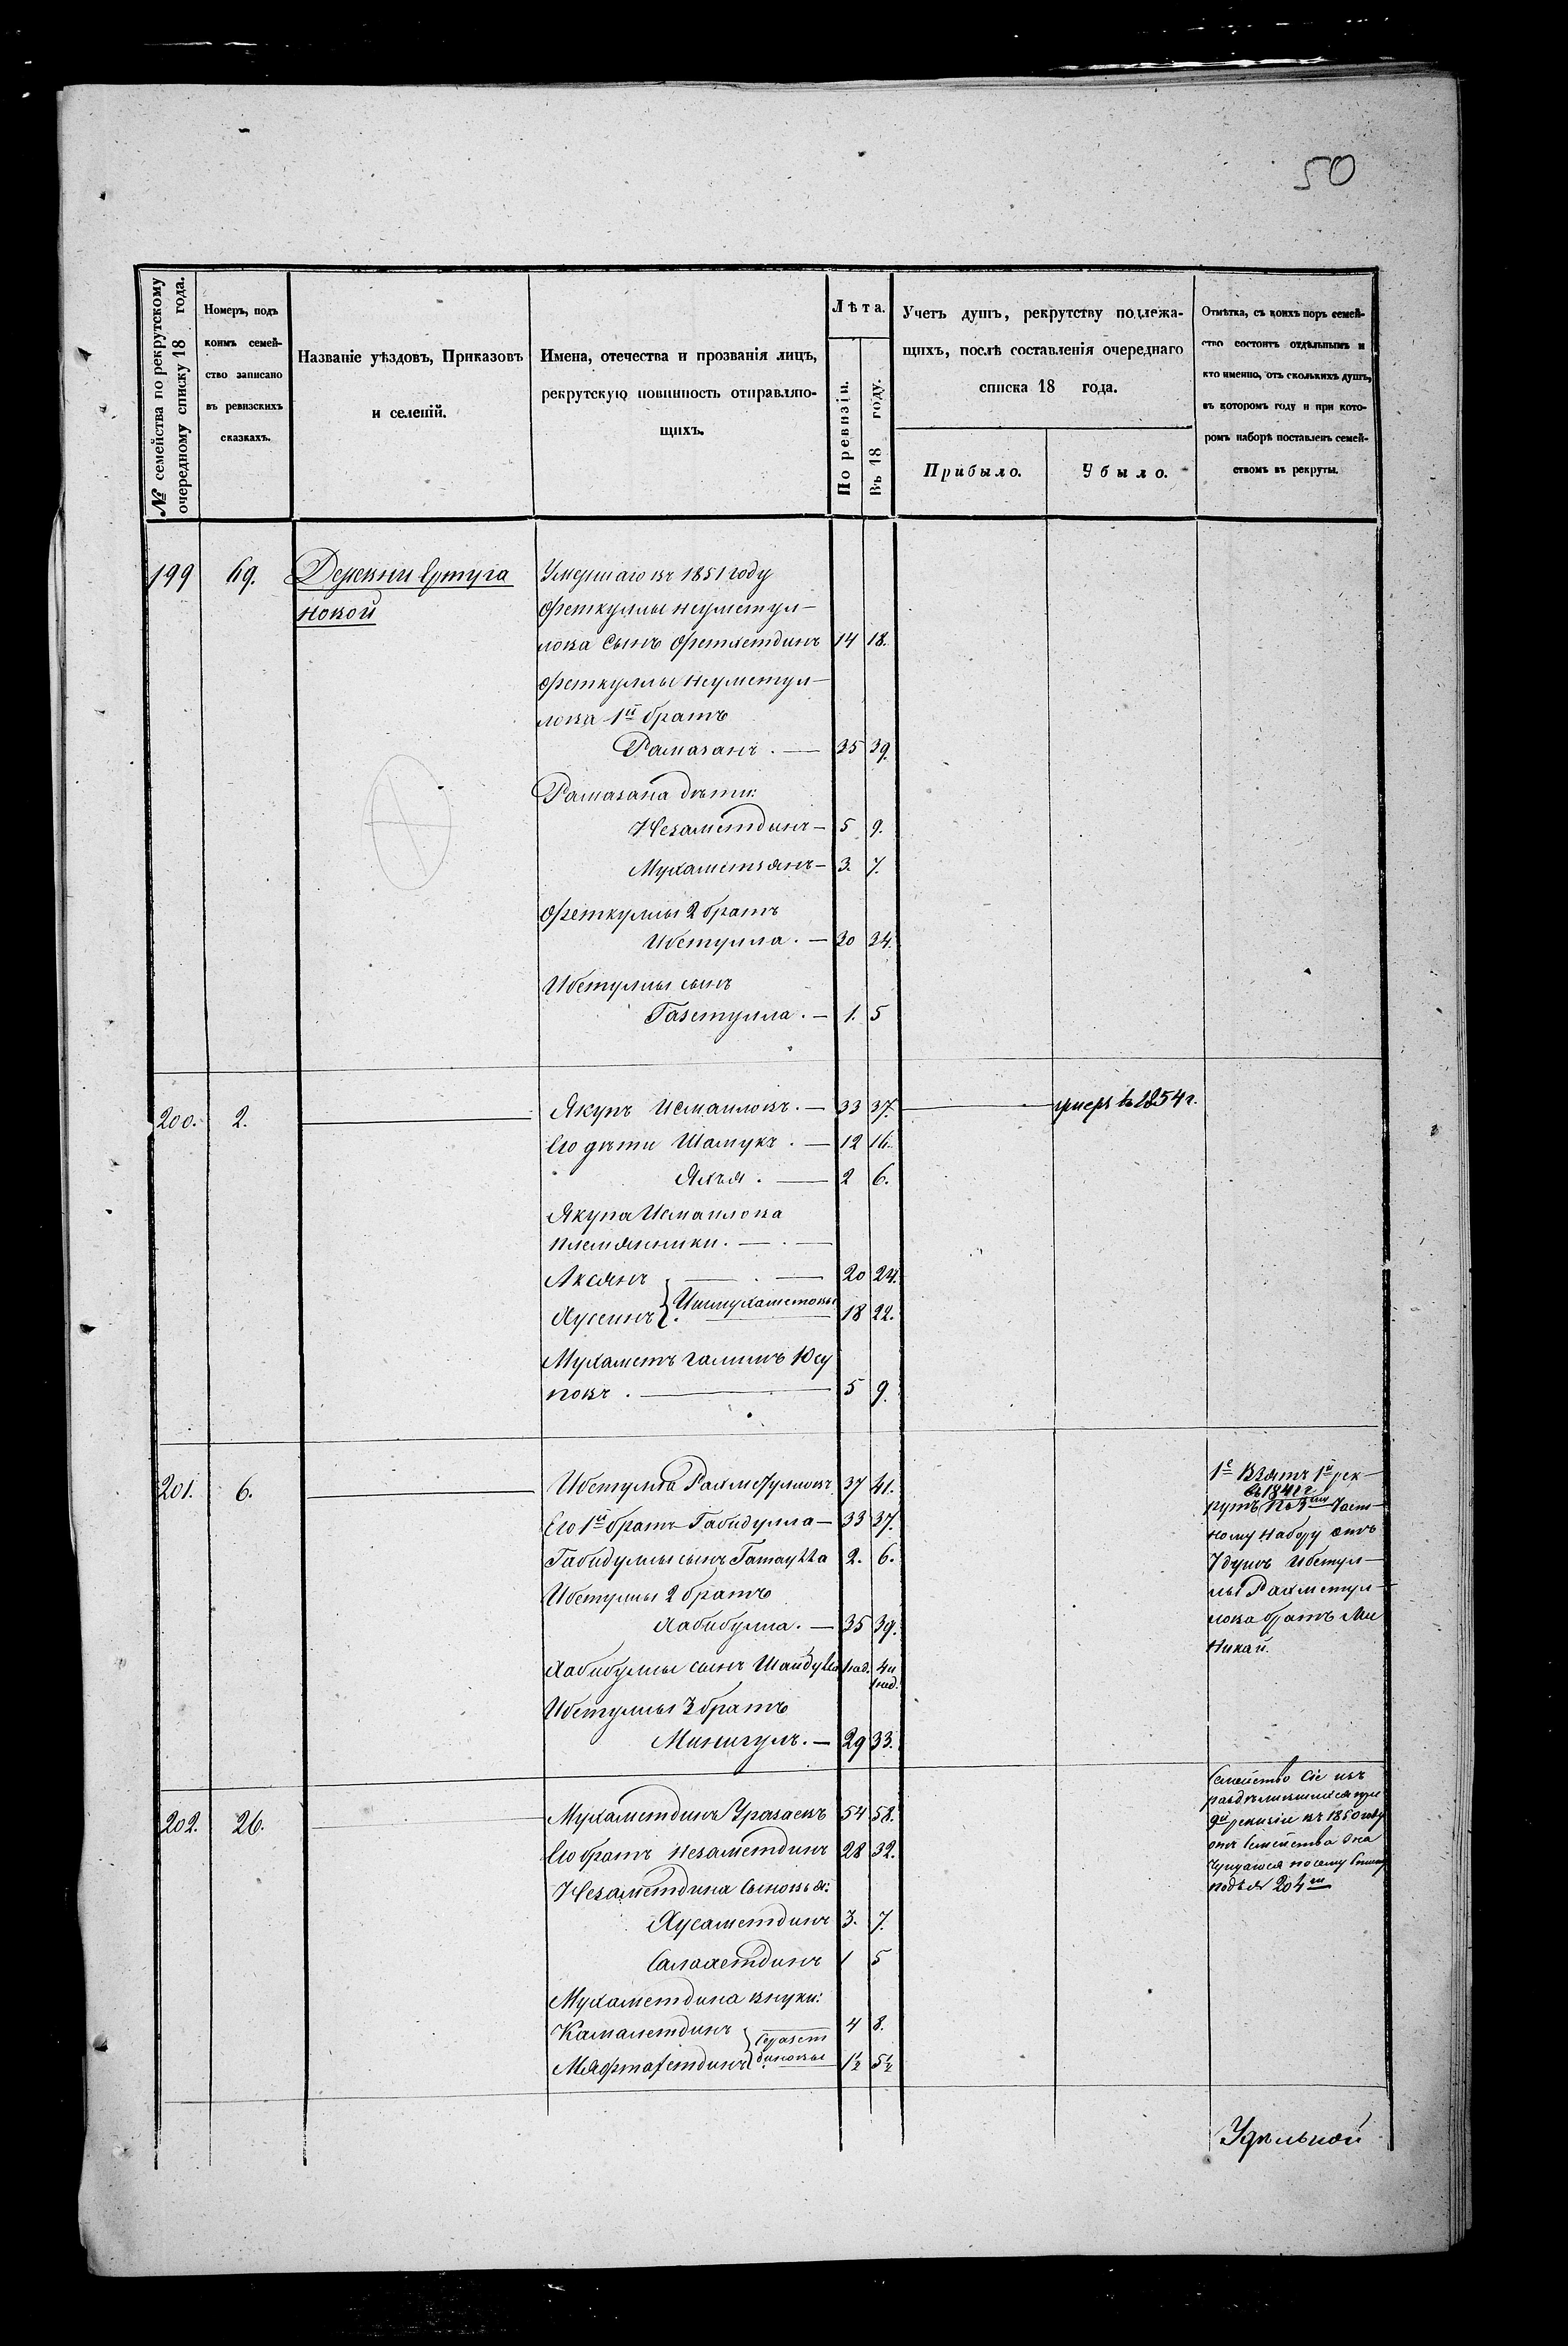 50
№ семейства по рекрутскому очередному списку 18 года.
Номеръ, подъ коимъ семейство записано въ ревизскихъ сказкахъ.
Названіе уѣздовъ, Приказовъ
и селеній.
Имена, отечества и прозванія лицъ,
рекрутскую повинность отправляю-
щихъ.
Лѣта.
По ревизіи.
Въ 18 году.
Учетъ душъ, рекрутству подлежа-
щихъ, послѣ составленія очереднаго
списка 18 года.
Прибыло.
Убыло.
Отмѣтка, съ коихъ поръ семей-
ство состоитъ отдѣльнымъ и
кто именно, отъ сколькихъ душъ,
въ которомъ году и при кото-
ромъ наборѣ поставленъ семей-
ствомъ въ рекруты.
199 69. Деревни Ертуга Умершаго въ 1851 году
новой Феткуллы Неуметул-
лова Сынъ Фетхетдинъ 14 18.
Феткуллы Неуметул-
лова 1й братъ
Рамазанъ. — 35 39.
Рамазана дѣти:
Незаметдинъ — 5 9.
Мухаметзянъ — 3. 7.
Феткуллы 2 братъ
Ибетулла. — 30 34.
Ибетуллы сынъ
Газетулла. — 1. 5
200. 2. Якупъ Исмаиловъ. — 33 37. умеръ въ 1854 г.
Его дѣти Шамукъ. — 12 16.
Яхья. — 2 6.
Якупа Исмаилова
племянники. —
Аксянъ 20 24.
Хусеинъ } Ишмухаметовы 18 22.
Мухаметъ галимъ Юсу
повъ. — 5 9.
201. 6. Ибетулла Рахметулловъ 37 41.
Его 1й братъ Габидулла — 33 37.
Габидуллы сынъ Гатаулла 2. 6.
Ибетуллы 2 братъ
Хабибулла. — 35 39.
Хабибуллы сынъ Шайдулла 1 нед. 4 и 1 нед.
Ибетуллы 3 братъ
Минигулъ. — 29 33.
1е Взятъ 1й рек-
въ 1841 г.
рутъ по 3му Част-
ному набору отъ
7 душъ Ибетул-
лы Рахметул-
лова братъ Ми
никай.
202. 26. Мухаметдинъ Уразаевъ 54 58.
Его братъ Незаметдинъ 28 32.
Незаметдина Сыновья:
Хусаметдинъ 3. 7.
Салахетдинъ 1 5
Мухаметдина внуки:
Камалетдинъ 4 8.
Мяфтахетдинъ } Серазетдиновы 1½ 5½
Семейство Сіе изъ
раздѣлившихся при
9й ревизіи въ 1850 году
отъ Семейства
по сему
подъ № 204м
Удѣльной